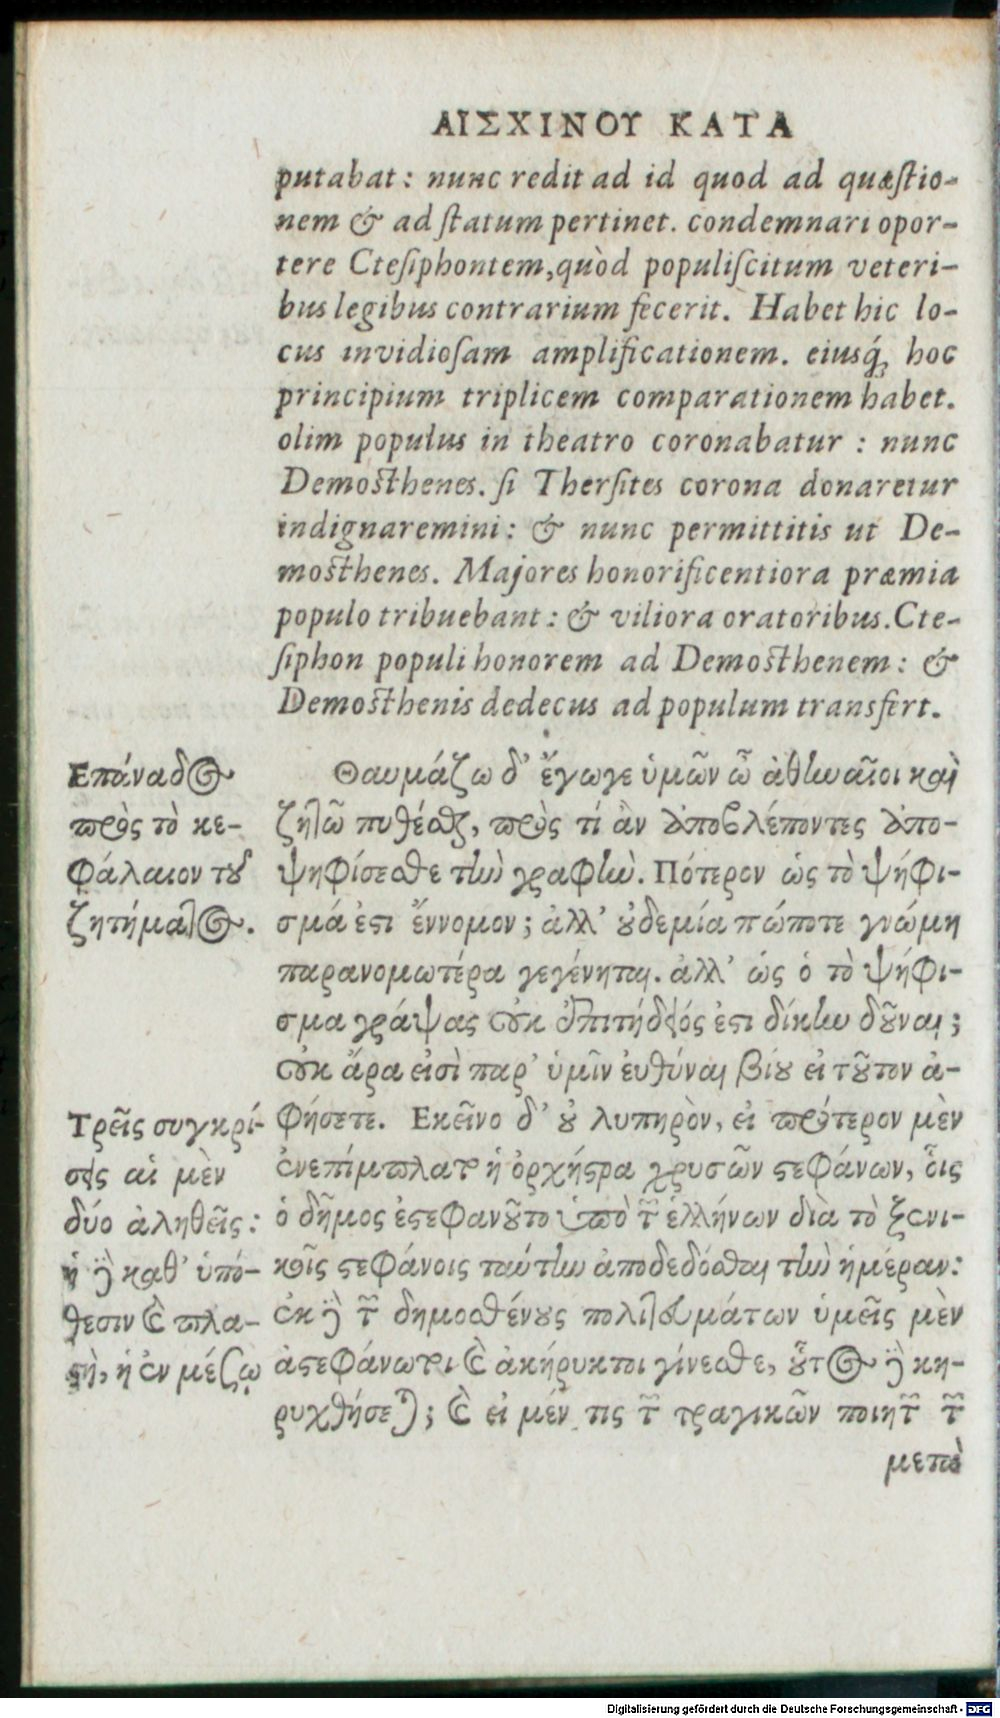 ΑΙΣΧΙΝΟΥ ΚΑΤΑ
putabat: nunc redit ad id quod ad quæſtio-
nem & ad ſtatum pertinet. condemnari opor-
tere Cteſiphontem, quòd populiſcitum veteri-
bus legibus contrarium fecerit. Habet hic lo-
cus invidioſam amplificationem. eiusq́; hoc
principium triplicem comparationem habet.
olim populus in theatro coronabatur : nunc
Demoſthenes. ſi Therſites corona donaretur
indignaremini: & nunc permittitis ut De-
moſthenes. Majores honorificentiora præmia
populo tribuebant: & viliora oratoribus. Cte-
ſiphon populi honorem ad Demoſthenem: &
Demoſthenis dedecus ad populum transfert.
Επάναδος
πρὸς τὸ κε-
φάλαιον τοῦ
ζητήματος.
Θαυμάζω δ' ἔγωγε ὑμῶν ὦ ἀθηναῖοι καὶ
ζητῶ πυθέσθαι, πρὸς τί ἂν ἀποβλέποντες ἀπο-
ψηφίσεσθε τὴν γραφήν. Πότερον ὡς τὸ ψήφι-
σμά ἐστι ἔννομον; ἀλλ' οὐδεμία πώποτε γνώμη
παρανομωτέρα γεγένηται. ἀλλ' ὡς ὁ τὸ ψήφι-
σμα γράψας οὐκ ἐπιτήδειός ἐστι δίκην δοῦναι;
οὐκ ἄρα εἰσὶ παρ' ὑμῖν ἐυθύναι βίου εἰ τοῦτον ἀ-
φήσετε. Εκεῖνο δ' οὐ λυπηρὸν, εἰ πρότερον μὲν
ἐνεπίμπλατο ἡ ὀρχήστρα χρυσῶν στεφάνων, οἷς
ὁ δῆμος ἐστεφανοῦτο ὑπὸ τῶν ἑλλήνων διὰ τὸ ξενι-
κοῖς στεφάνοις ταύτην ἀποδεδόσθαι τὴν ἡμέραν:
ἐκ δὲ τῶν δημοσθένους πολιτευμάτων ὑμεῖς μὲν
ἀστεφάνωτοι καὶ ἀκήρυκτοι γίνεσθε, οὗτος δὲ κη-
ρυχθήσεται; καὶ εἰ μέν τις τῶν τραγικῶν ποιητῶν τῶν
Τρεῖς συγκρί-
σεις αἱ μὲν
δύο ἀληθεῖς:
ἡ δὲ καθ' ὑπό-
θεσιν καὶ πλα-
στὴ, ἡ ἐν μέσῳ
μετὰ
Digitalisierung gefördert durch die Deutsche Forschungsgemeinschaft - DFG